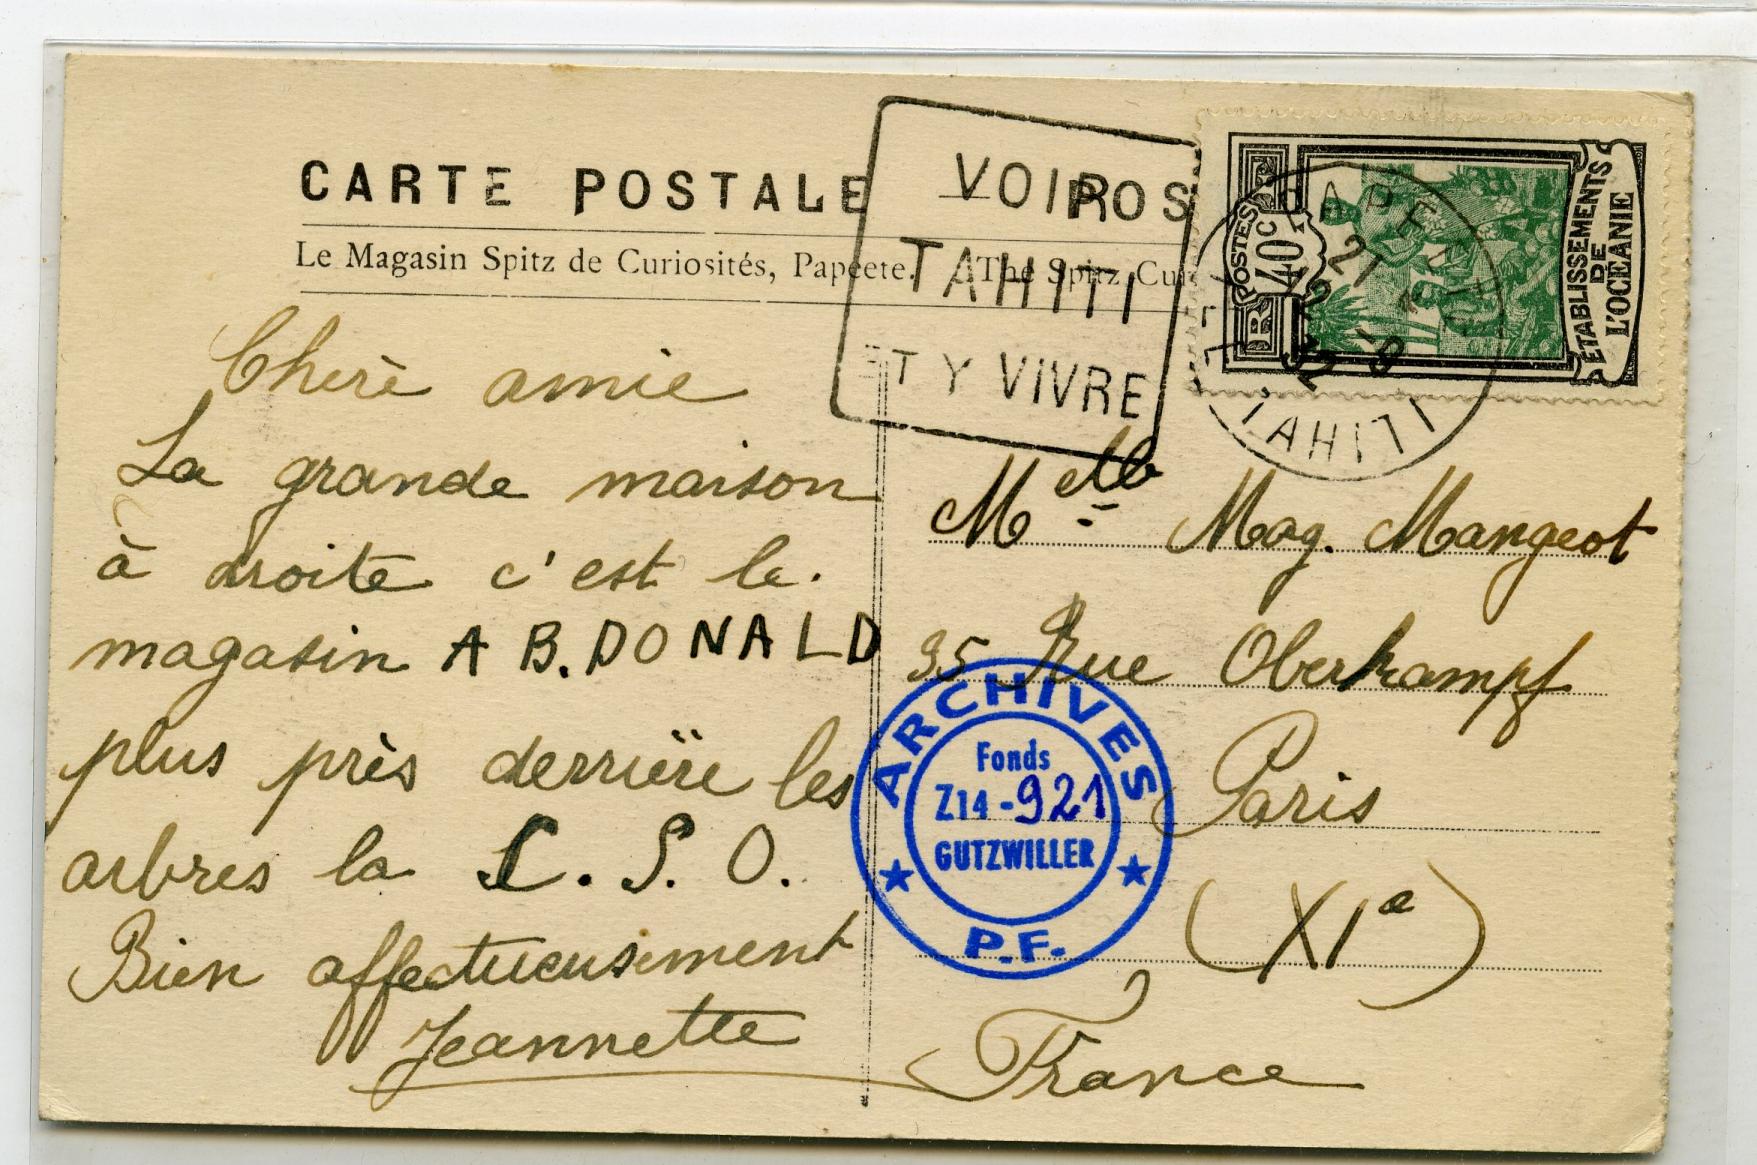 CARTE POSTALE
Le Magasin Spitz de Curiosités, Papeete. The Spitz Cur
VOIR
TAHITI
ET Y VIVRE
POS
POSTES
40c
RF
ÉTABLISSEMENTS
DE
L'OCÉANIE
PAPEETE
21
12
32
TAHITI
Cherè amie
La grande maison
à droite c'est le.
magasin A B. DONALD
plus près derrière les
arbres la C. S. O.
Bien affectueusement
Jeannette
Melle Mag. Mangeot
95 Rue Oberkampf
Paris
(XIe)
France
ARCHIVES
Fonds
Z14-921
GUTZWILLER
P.F.